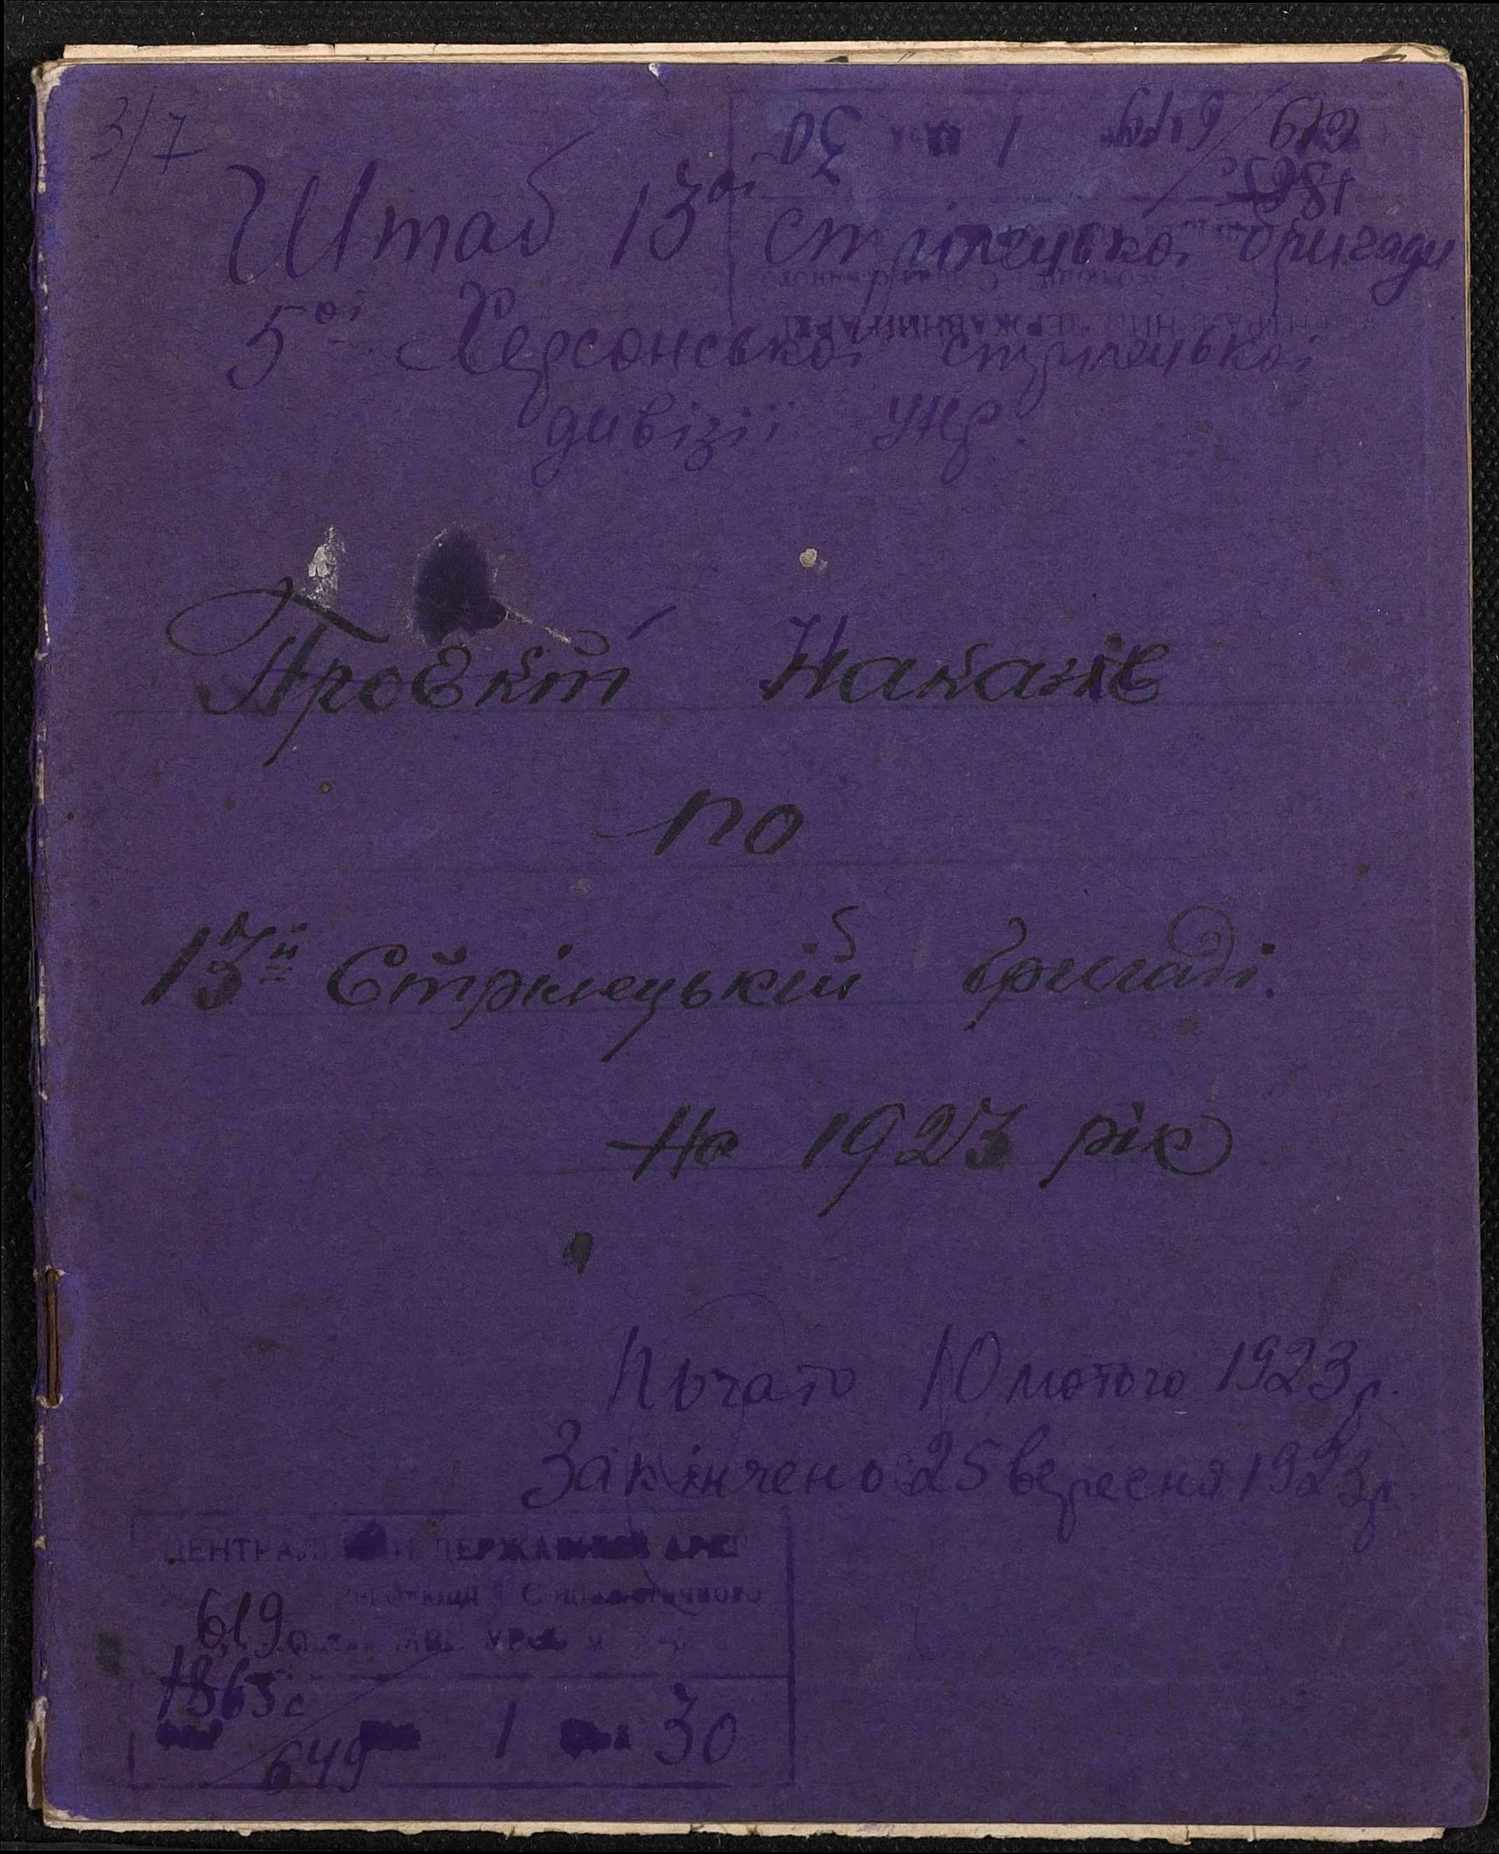 3/7
Штаб 13ої стрілецької бригади
5ої Херсонської стрілецької
дивізії УНР.
Проєкт Наказів
по
13й Стрілецькій бригаді.
На 1923 рік
Почато 10 лютого 1923 р.
Закінчено 25 вересня 1923 р.
ЦЕНТРАЛЬНИЙ ДЕРЖАВНИЙ АРХІВ
619
1865с
1 30
649